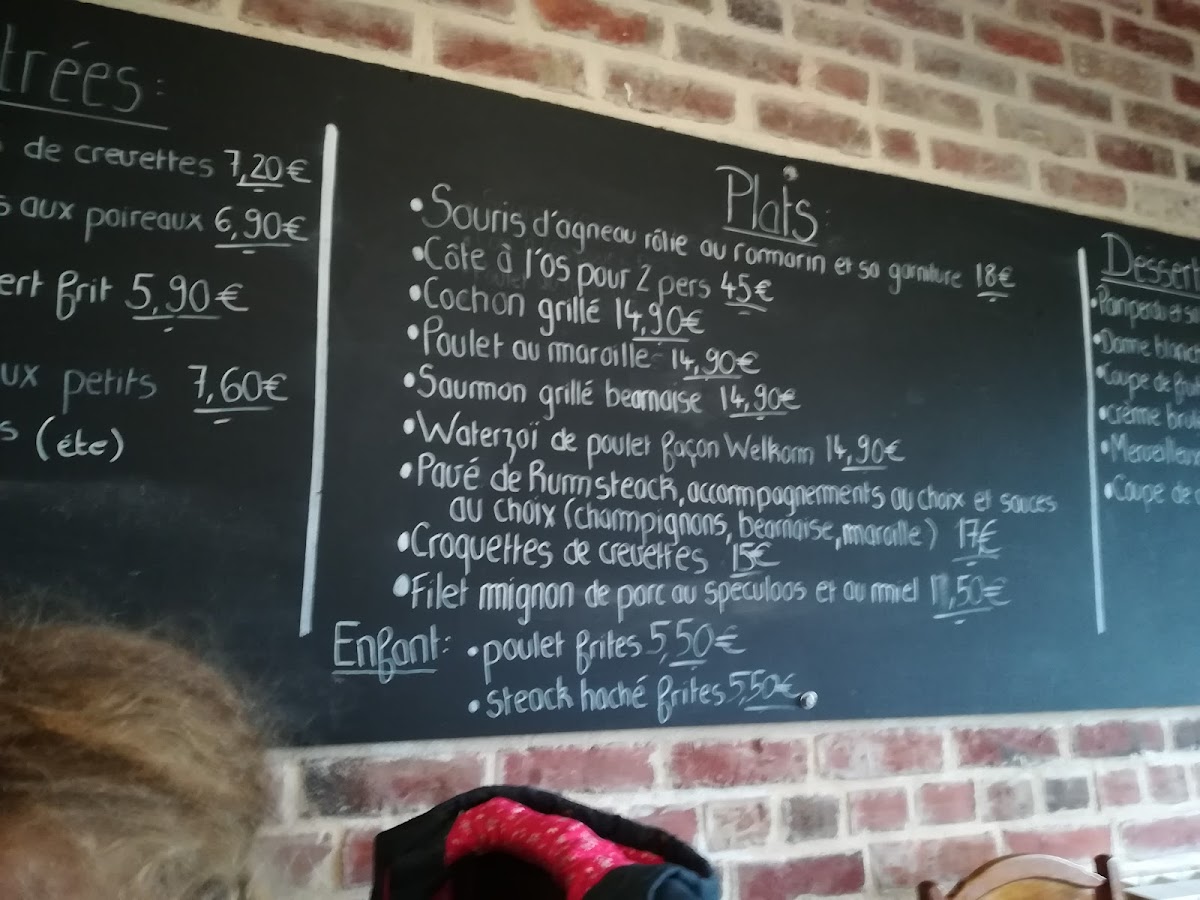 trées:
de crevettes 7,20€
aux poireaux 6,90€
frit 5,90€
petits 7,60€
(éte)
Plats:
•Souris d'agneau rôtie au romarin et sa garniture 18€
•Côte à l'os pour 2 pers 45€
•Cochon grillé 14,90€
•Poulet au maroille 14,90€
•Saumon grillé bearnaise 14,90€
•Waterzoï de poulet façon Welkom 14,90€
•Pavé de Rumsteack, accompagnements au choix et sauces
au choix (champignons, bearnaise, maroille) 17€
•Croquettes de crevettes 15€
•Filet mignon de porc au speculoos et au miel
Enfant: •poulet frites 5,50€
•steack haché frites 5,50€
Dessert
•Pain perdu et sa
•Dame blanch
•Coupe de
•crème
•Merveilleux
•Coupe de